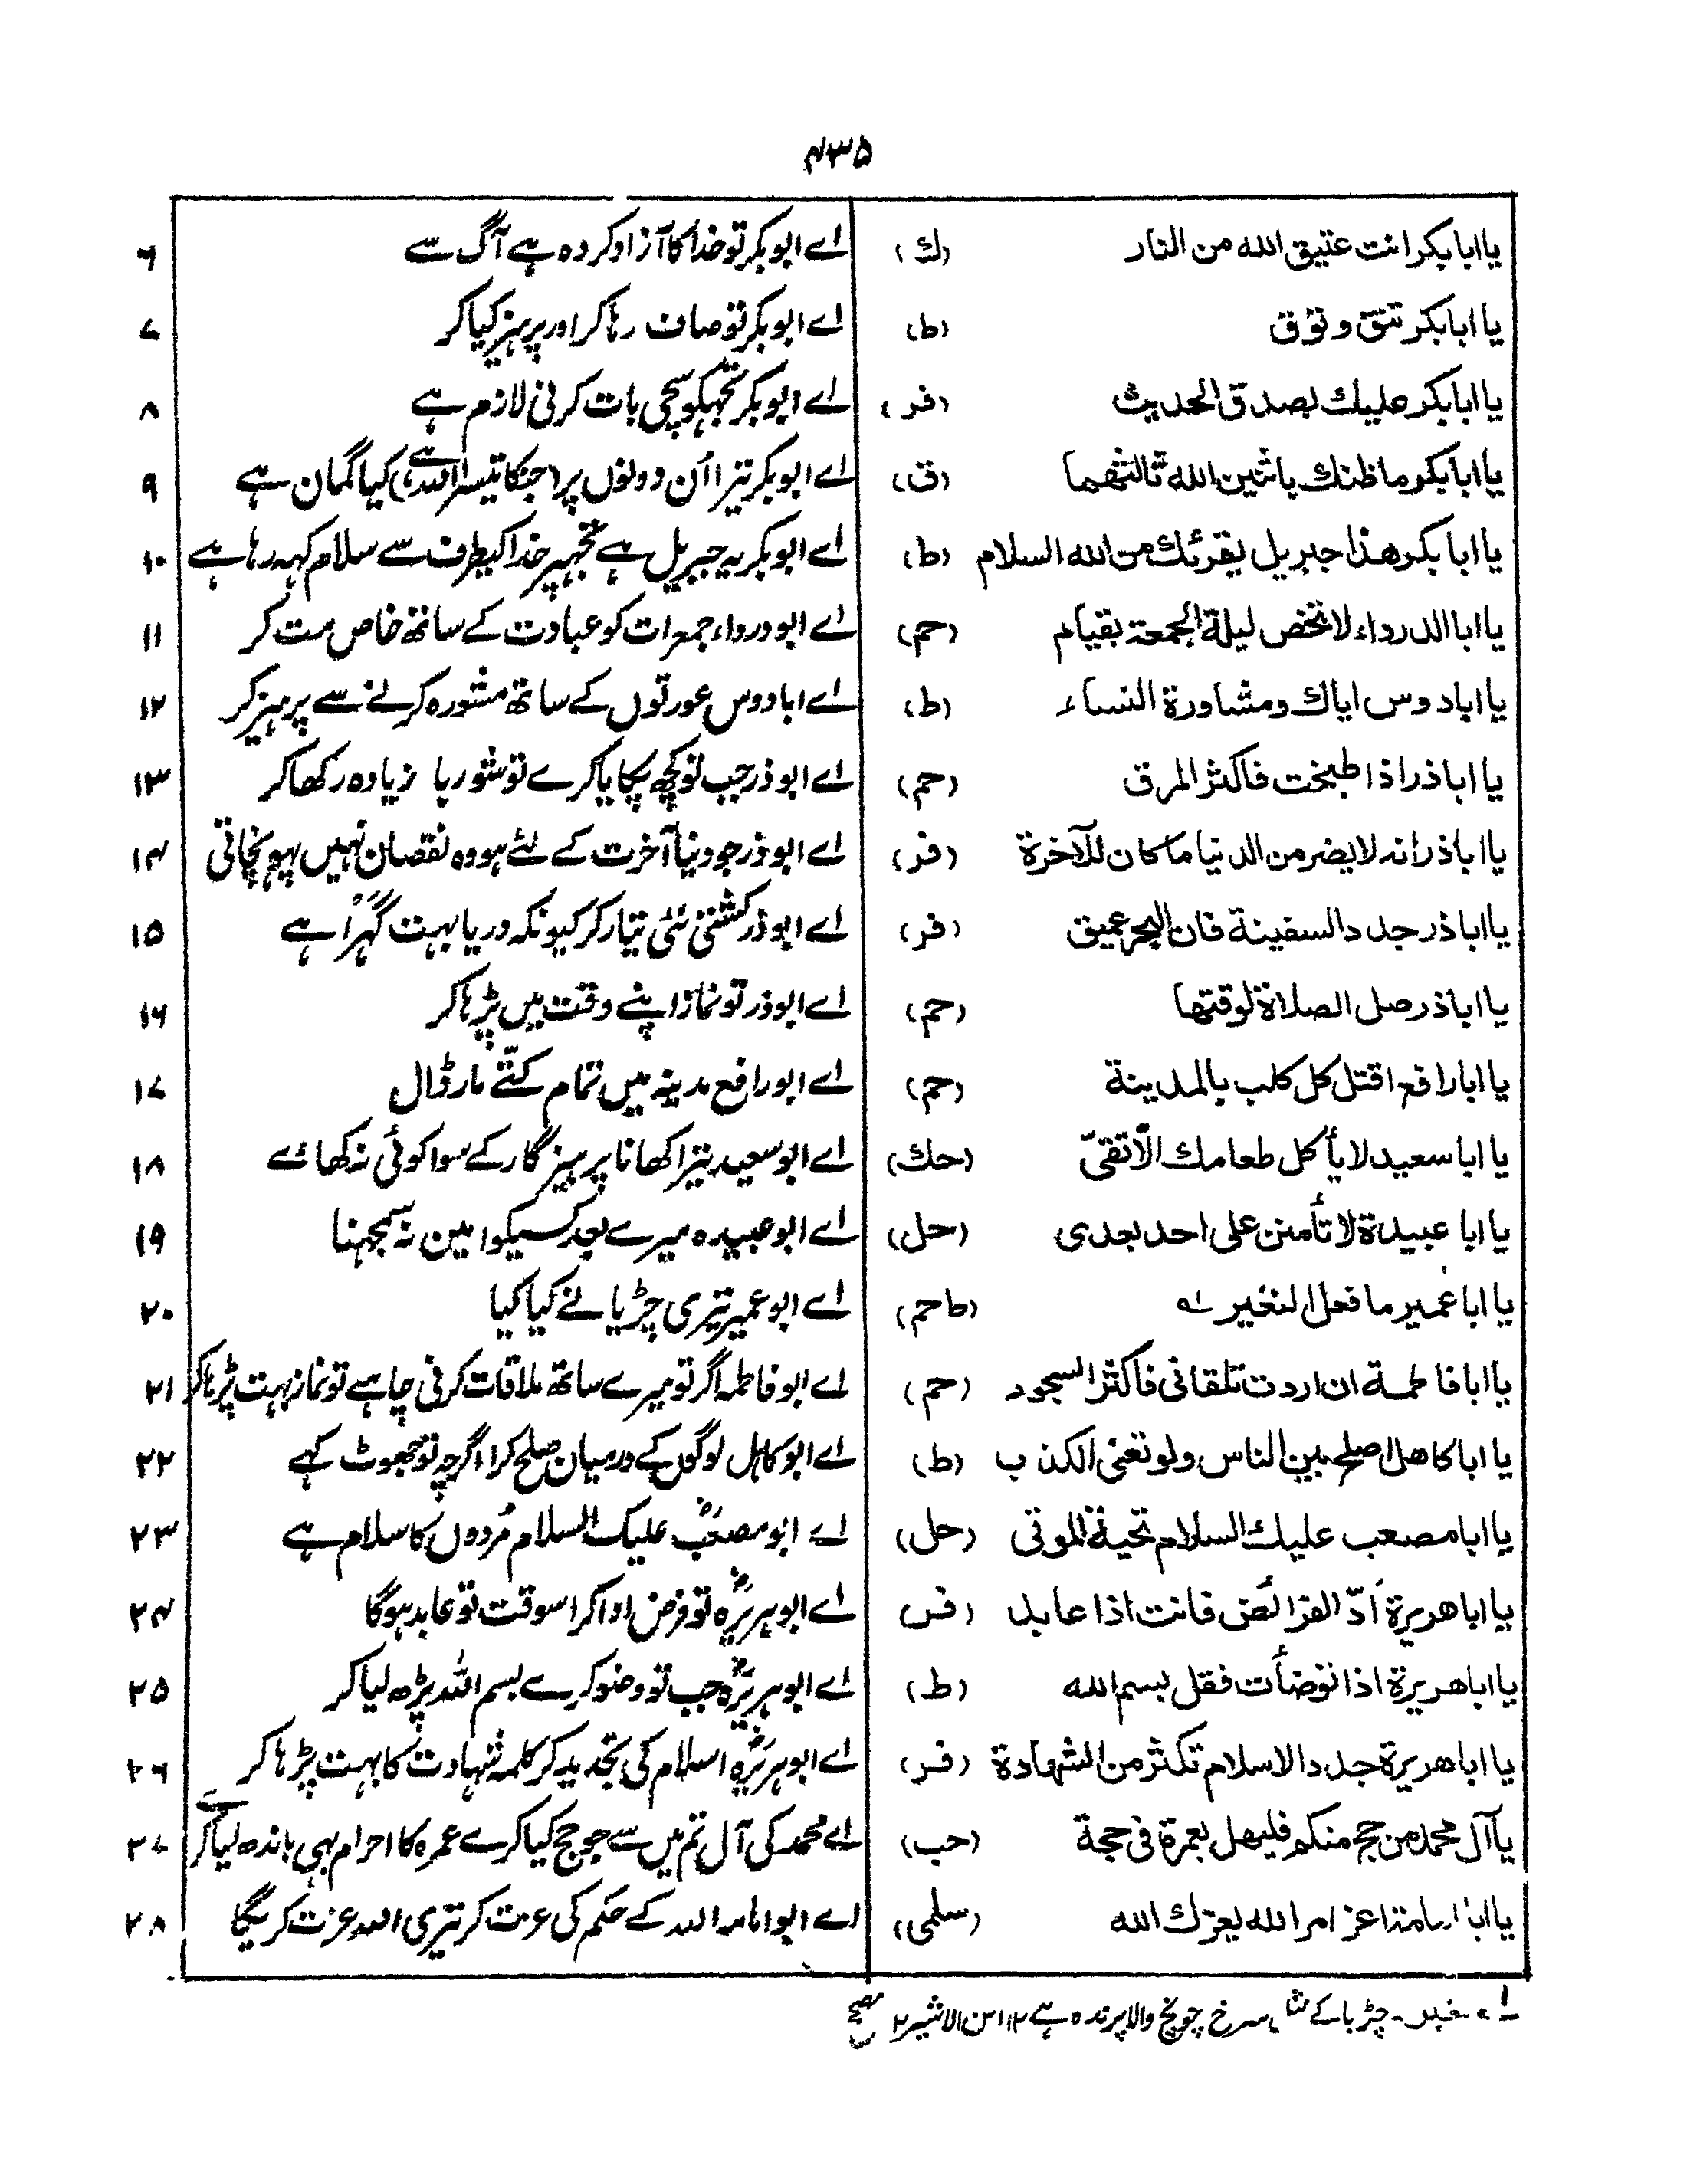 ۴۳۵
يا ابا بكر انت عتيق الله من النار (ك) اے ابوبکر تو خدا کا آزاد کردہ ہے آگ سے ۶
يا ابا بكر تنق و توق (ط) اے ابوبکر تو صاف رہا کر اور پرہیز کیا کر ۷
يا ابا بكر عليك بصدق الحديث (فر) اے ابوبکر تجہکو سچی بات کرنی لازم ہے ۸
يا ابا بكر ما ظنك باثنين الله ثالثهما (ق) اے ابوبکر تیرا اُن دونوں پر (جنکا تیسرا اللہ ہے) کیا گمان ہے ۹
يا ابا بكر هذا جبريل يقرئك من الله السلام (ط) اے ابوبکر یہ جبریل ہے تجہپر خدا کیطرف سے سلام کہہ رہا ہے ۱۰
يا ابا الدرداء لا تخص ليلة الجمعة بقيام (حم) اے ابو درداء جمعرات کو عبادت کے ساتھ خاص مت کر ۱۱
يا ابا دوس اياك ومشاورة النساء (ط) اے ابا دوس عورتوں کے ساتھ مشورہ کرنے سے پرہیز کر ۱۲
يا ابا ذر اذا طبخت فاكثر المرق (حم) اے ابوذر جب تو کچھ پکایا کرے تو شوربا زیادہ رکھا کر ۱۳
يا ابا ذر انه لا يضر من الدنيا ما كان للآخرة (فر) اے ابوذر جو دنیا آخرت کے لئے ہو وہ نقصان نہیں پہونچاتی ۱۴
يا ابا ذر جدد السفينة فان البحر عميق (فر) اے ابوذر کشتی نئی تیار کر کیونکہ دریا بہت گہرا ہے ۱۵
يا ابا ذر صل الصلاة لوقتها (حم) اے ابوذر تو نماز اپنے وقت میں پڑہا کر ۱۶
يا ابا رافع اقتل كل كلب بالمدينة (حم) اے ابو رافع مدینہ میں تمام کتّے مار ڈال ۱۷
يا ابا سعيد لا يأكل طعامك الّا تقیّ (حك) اے ابو سعید تیرا کھانا پرہیز گار کے سوا کوئی نہ کھائے ۱۸
يا ابا عبيدة لا تأمنن على احد بعدى (حل) اے ابو عبیدہ میرے بعد کسیکو امین نہ سمجہنا ۱۹
يا ابا عمير ما فعل النغير لہ (ط حم) اے ابو عمیر تیری چڑیا نے کیا کیا ۲۰
يا ابا فاطمة ان اردت تلقانى فاكثر السجود (حم) اے ابو فاطمہ اگر تو میرے ساتھ ملاقات کرنی چاہے تو نماز بہت پڑہا کر ۲۱
يا ابا كاهل اصلح بين الناس ولو تعنى الكذب (ط) اے ابو کاہل لوگوں کے درمیان صلح کرا اگرچہ تو جھوٹ کہے ۲۲
يا ابا مصعب عليك السلام تحية الموتى (حل) اے ابو مصعبؓ علیک السلام مُردوں کا سلام ہے ۲۳
يا ابا هريرة اَدّ الفرائض فانت اذا عابد (فر) اے ابوہریرہؓ تو فرض ادا کر اسوقت تو عابد ہوگا ۲۴
يا ابا هريرة اذا توضأت فقل بسم الله (ط) اے ابوہریرہؓ جب تو وضو کرے بسم اللہ پڑھ لیا کر ۲۵
يا ابا هريرة جدد الاسلام تكثر من الشهادة (فر) اے ابوہریرہؓ اسلام کی تجدید کر کلمہ شہادت کا بہت پڑہا کر ۲۶
يا آل محمد من حج منكم فليهل بعمرة فى حجة (حب) اے محمد کی آل تم میں سے جو حج کیا کرے عمرہ کا احرام بہی باندھ لیا کرے ۲۷
يا ابا امامة اعز امر الله يعزك الله (سلمى) اے ابو امامہ اللہ کے حکم کی عزت کر تیری اللہ عزت کریگا ۲۸
چڑیا کے سرخ چونچ والا پرندہ ہے ۱۲ ابن الاثیر ۱۲ مصحح